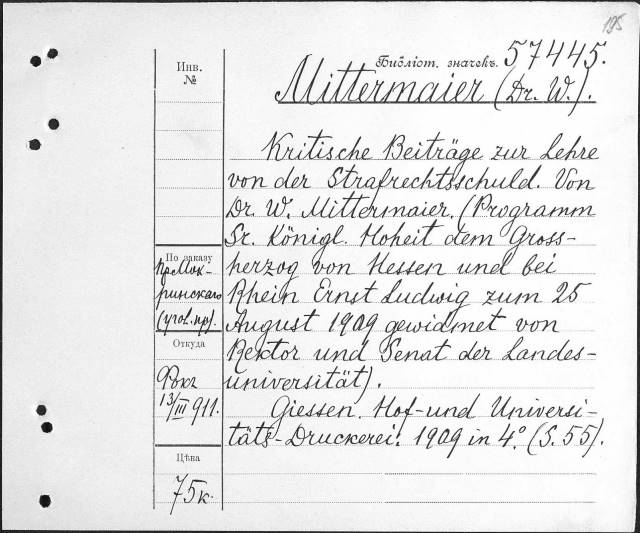 195
Библіот. значекъ. 57445.
Инв.
№
Mittermaier (Dr. W.).
Kritische Beiträge zur Lehre
von der Strafrechtsschuld. Von
Dr. W. Mittermaier. (Programm
Sr. Königl. Hoheit dem Gross-
herzog von Hessen und bei
Rhein Ernst Ludwig zum 25
August 1909 gewidmet von
Rektor und Senat der Landes-
universität).
Giessen. Hof- und Universi-
täts-Druckerei. 1909 in 4°. (S. 55).
По заказу
пр. Мок-
ринскаго
(угол. пр).
Откуда
Фокъ
13/III 911.
Цѣна
75к.